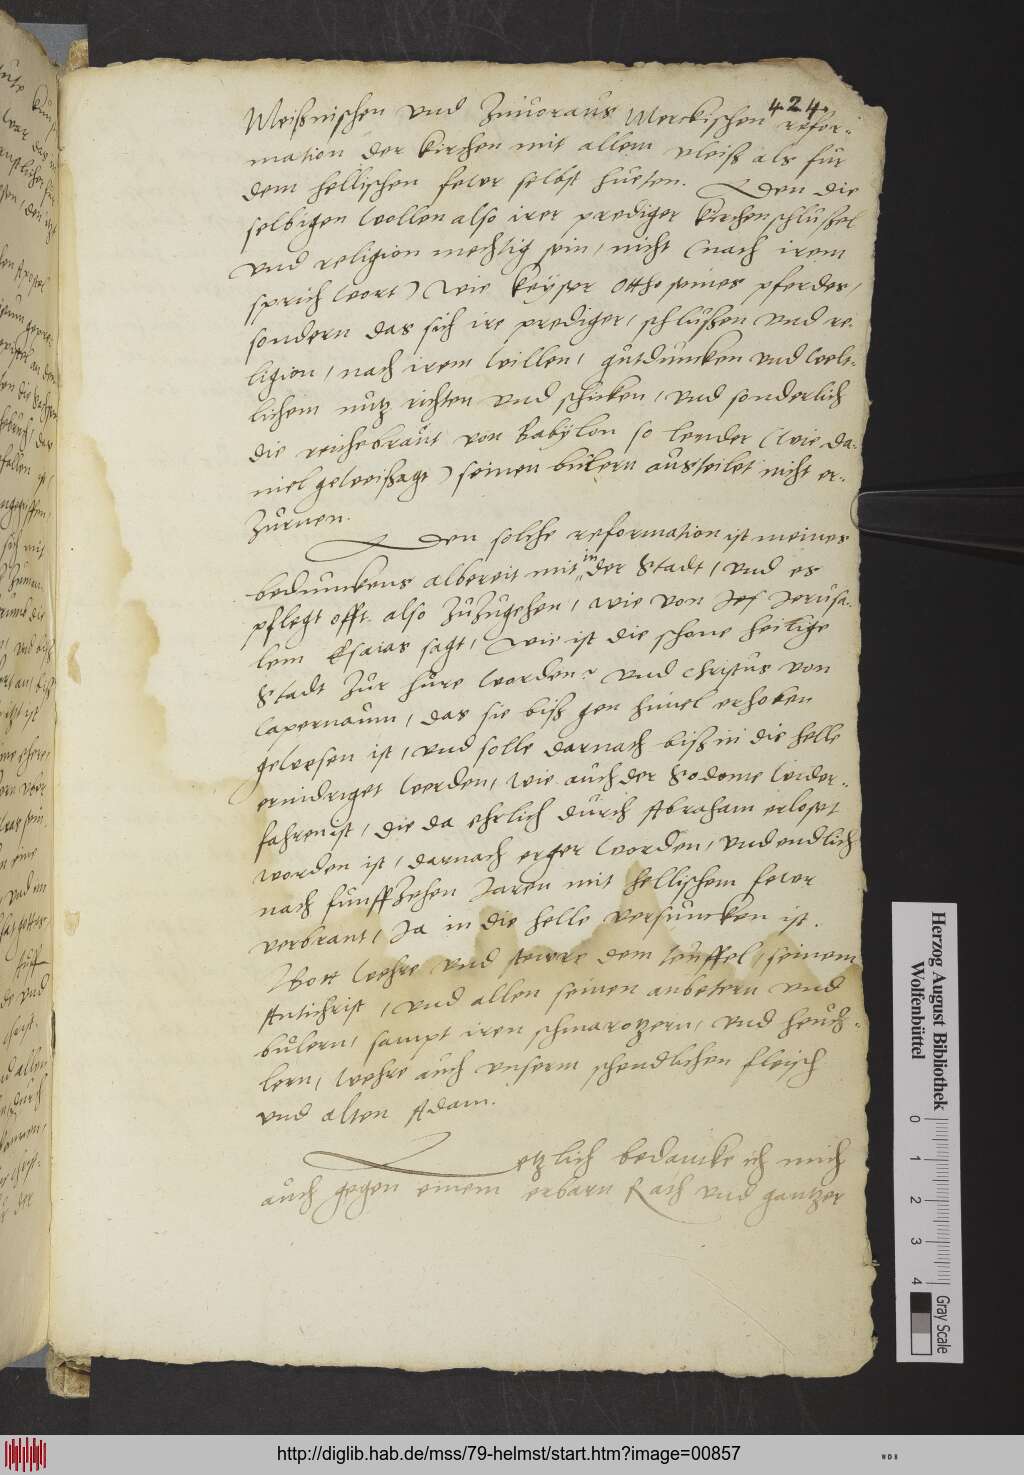 424
Meißnischen und Zuuoraus Merckischen refor-
mation der kirchen mit allem vleiß als fur
dem hellischen fewr selbst hueten. Den die
selbigen wollen also irer prediger kirchenschlussel
und religion mechtig sein, nicht (nach irem
sprich wort) wie Keyser Ottho seines pferdes,
sondern das sich ire prediger, schlussen und re-
ligion, nach irem willen, gutduncken und welt-
lichem nutz richten und schicken, und sonderlich
die reichebraut von Babylon so lender (wie da-
niel geweissagt) seinen bulern austeilet nicht er-
zurnen.
Den solche reformation ist meines
bedunckens albereit mit in der Stadt, und es
pflegt offt also zuzugehen, wie von Jerusa-
lem Esaias sagt, Wie ist die schone heilige
Stadt zur hure worden? und Christus von
Capernaum, das sie biß gen himel erhoben
gewesen ist, und solle darnach biß in die helle
ernidriget werden, Wie auch der Sodome wider-
fahren ist, die da ehrlich durch Abraham erloset
worden ist, darnach erger worden, und endlich
nach funffzehen Jaren mit hellischem fewr
verbrant, Ja in die helle versuncken ist.
Gott wehre und stewre dem teuffel, seinem
Antichrist, und allen seinen anbetern und
bulern, sampt iren schmarotzern, und heuch-
lern, wehre auch unserm schendlichen fleisch
und alten Adam.
Letzlich bedancke ich mich
auch gegen einem erbarn Rath und gantzer
Herzog August Bibliothek
Wolfenbüttel
0 1 2 3 4
Gray Scale
http://diglib.hab.de/mss/79-helmst/start.htm?image=00857